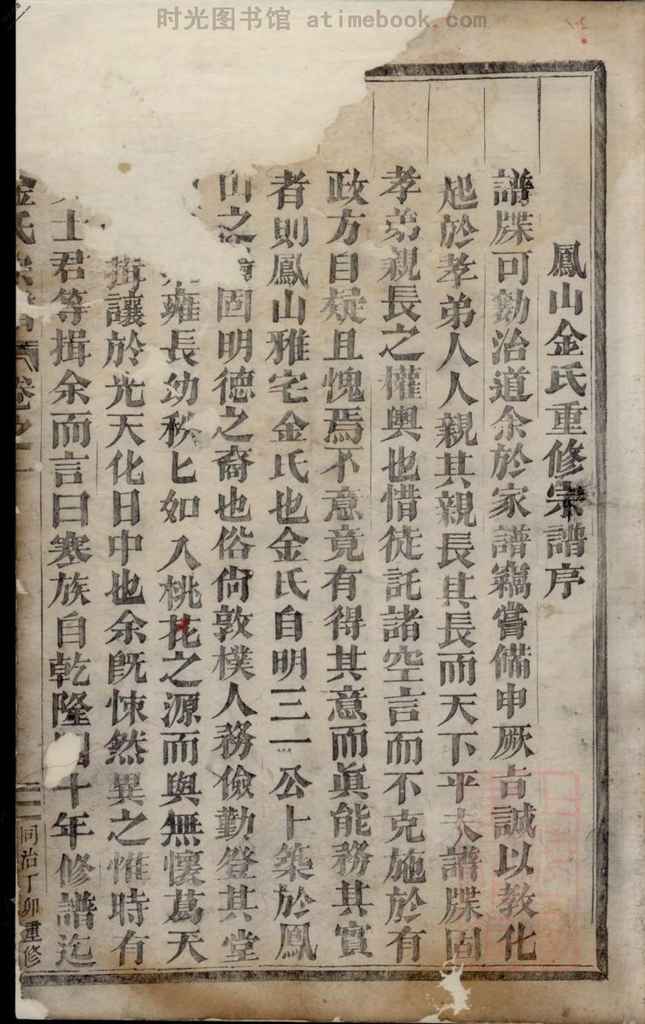 时光图书馆 atimebook.com
鳳山金氏重修宗譜序
譜牒可勷治道余於家譜竊嘗備申厥古誠以教化
起於孝弟人人親其親長其長而天下平夫譜牒固
孝弟親長之權輿也惜徒託諸空言而不克施於有
政方自疑且愧焉不意竟有得其意而眞能務其實
者則鳳山雅宅金氏也金氏自明三一公卜築於鳳
山之 固明德之裔也俗尙敦樸人務儉勤登其堂
雍長幼秩匕如入桃花之源而與無懷葛天
揖讓於光天化日中也余旣悚然異之惟時有
士君等揖余而言曰寒族自乾隆四十年修譜迄
金氏宗譜 卷之一 同治丁卯重修